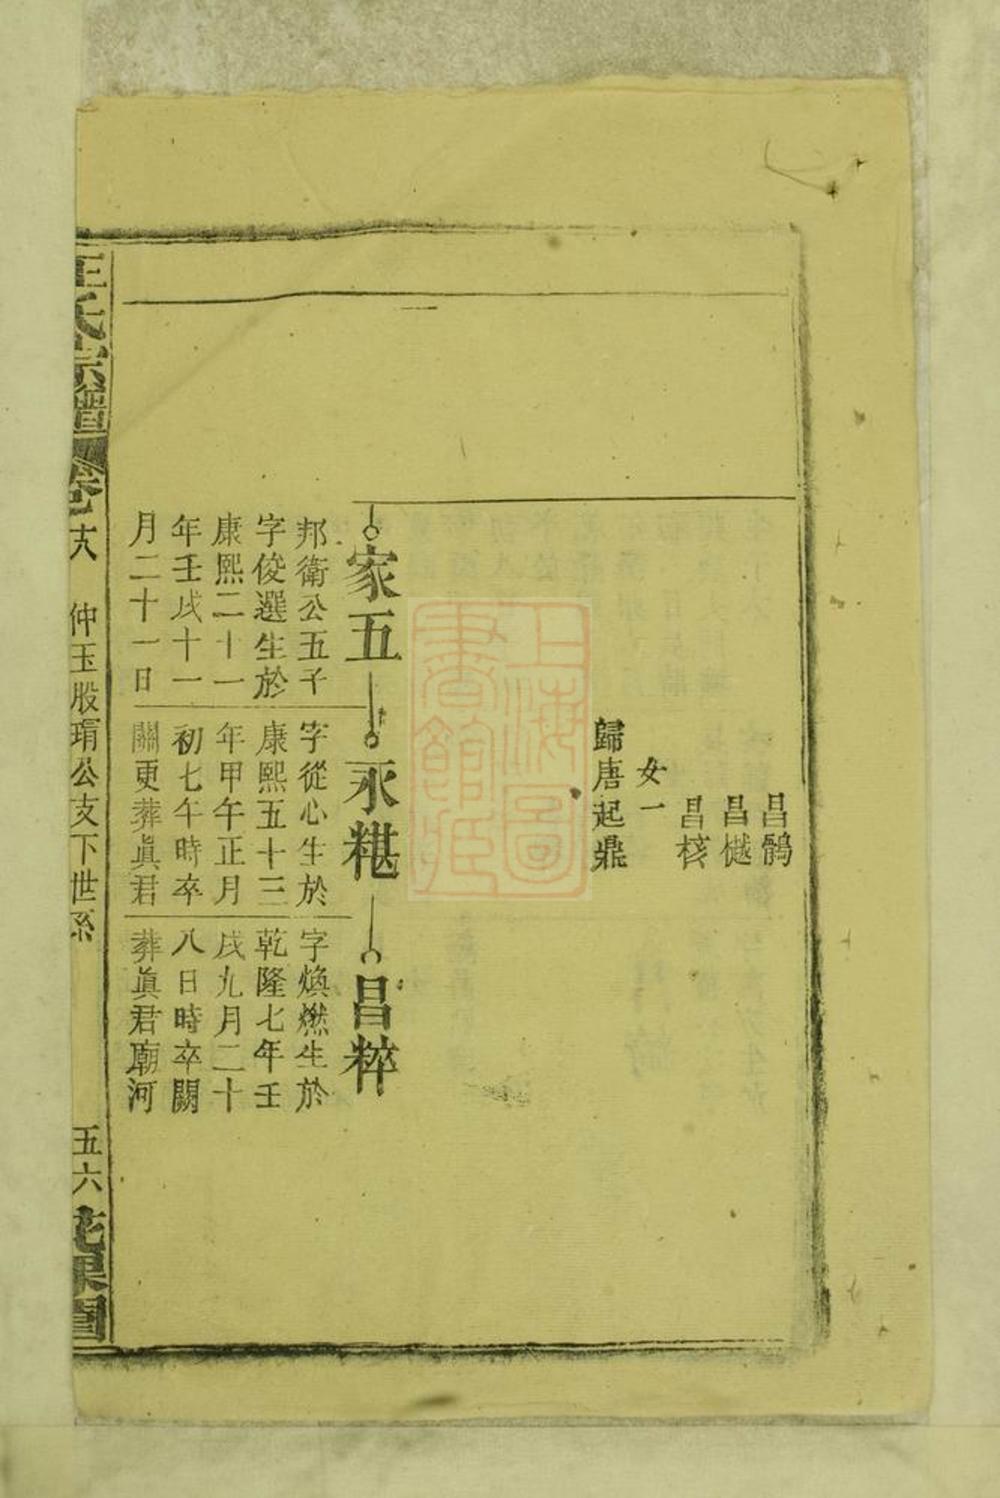 昌鶺
昌樾
昌核
女一
歸唐起鼎
家五
永糂
昌粹
邦衛公五子
字俊選生於
康熙二十一
年壬戌十一
月二十一日
字從心生於
康熙五十三
年甲午正月
初七午時卒
關更葬眞君
字煥燃生於
乾隆七年壬
戌九月二十
八日時卒闕
葬眞君廟河
氏宗譜
卷
仲玉股瑁公支下世系
五六
花果園
上海圖
書館藏